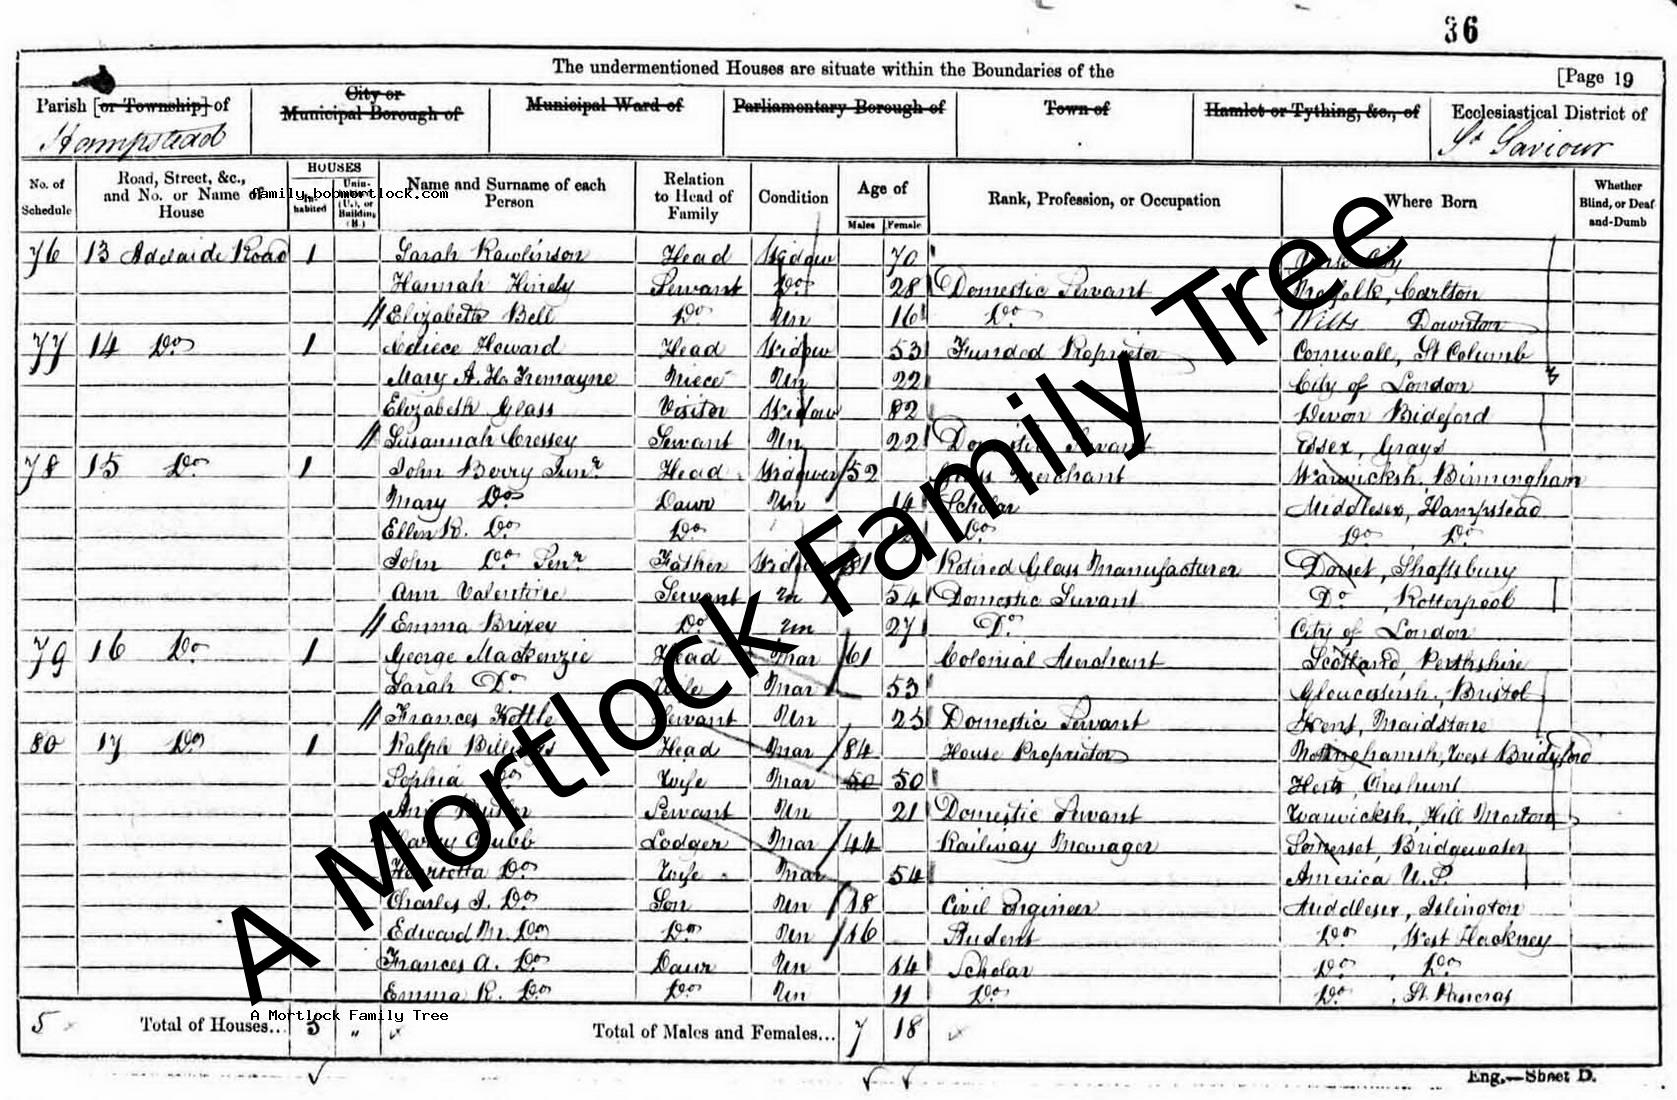 36
The undermentioned Houses are situate within the Boundaries of the
[Page 19
Parish [or Township] of Hampstead
City or Municipal Borough of
Municipal Ward of
Parliamentary Borough of
Town of
Hamlet or Tything, &c., of
Ecclesiastical District of St Saviour
No. of Schedule
Road, Street, &c., and No. or Name of House
HOUSES
habited
family.bobmortlock.com
Name and Surname of each Person
Relation to Head of Family
Condition
Age of
Males
Females
Rank, Profession, or Occupation
Where Born
Whether Blind, or Deaf-and-Dumb
76 13 Adelaide Road 1 Sarah Rawlinson Head Widow 70
Hannah Servant Do 28 Domestic Servant Norfolk, Carlton
Elizabeth Bell Do Un 16 Do Wilts Downton
77 14 Do 1 Howard Head Widow 53 Funded Proprietor Cornwall, St Columb
Mary A. Ho Tremayne Niece Un 22 City of London
Elizabeth Glass Visitor Widow 82 Devon Bideford
Susannah Cressey Servant Un 22 Domestic Servant Essex, Grays
78 15 Do 1 John Berry Junr Head Widower 52 Merchant Warwicksh. Birmingham
Mary Do Daur Un 14 Scholar Middlesex, Hampstead
Ellen R. Do Do Do Do Do
John Do Senr Father 81 Retired Glass Manufacturer Dorset, Shaftsbury
Ann Valentine Servant Un 54 Domestic Servant Do,
Emma Brixey Do Un 27 Do City of London
79 16 Do 1 George Mackenzie Head Mar 61 Colonial Merchant Scotland, Perthshire
Sarah Do Wife Mar 53 Gloucestersh. Bristol
Frances Kettle Servant Un 25 Domestic Servant Kent, Maidstone
80 17 Do 1 Ralph Head Mar 84 House Proprietor Nottinghamsh, West Bridgford
Sophia Do Wife Mar 50 50 Herts, Cheshunt
Servant Un 21 Domestic Servant Warwicksh, Hill Morton
Lodger Mar 44 Railway Manager Somerset, Bridgewater
Henrietta Do Wife Mar 54 America U.S.
Charles J. Do Son Un 18 Civil Engineer Middlesex, Islington
Edward M. Do Do Un 16 Student Do, West Hackney
Frances A. Do Daur Un 14 Scholar Do, Do
Emma R. Do Do Un 11 Do Do, St Pancras
5 Total of Houses... 5 Total of Males and Females... 7 18
A Mortlock Family Tree
A Mortlock Family Tree
Eng.—Sheet D.